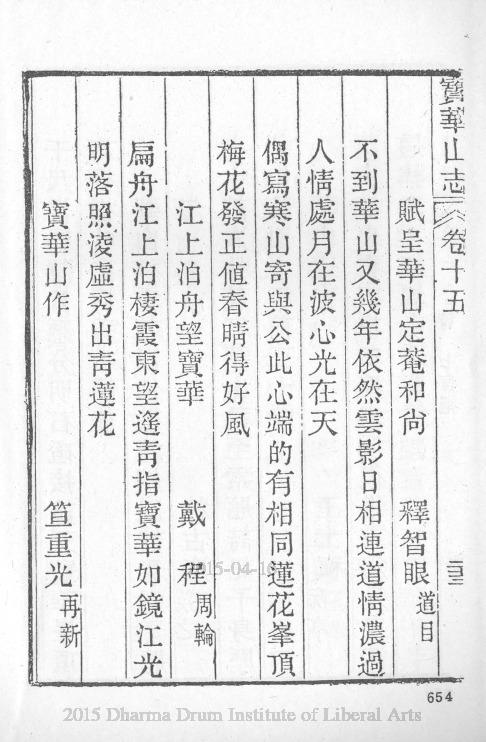 寶華山志 卷十五
賦呈華山定菴和尙 釋智眼道目
不到華山又幾年依然雲影日相連道情濃過
人情處月在波心光在天
偶寫寒山寄與公此心端的有相同蓮花峯頂
梅花發正値春晴得好風
江上泊舟望寶華 戴程周輪
扁舟江上泊棲霞東望遙靑指寶華如鏡江光
明落照凌虛秀出靑蓮花
寶華山作 笪重光再新
654
2015-04-16
2015 Dharma Drum Institute of Liberal Arts